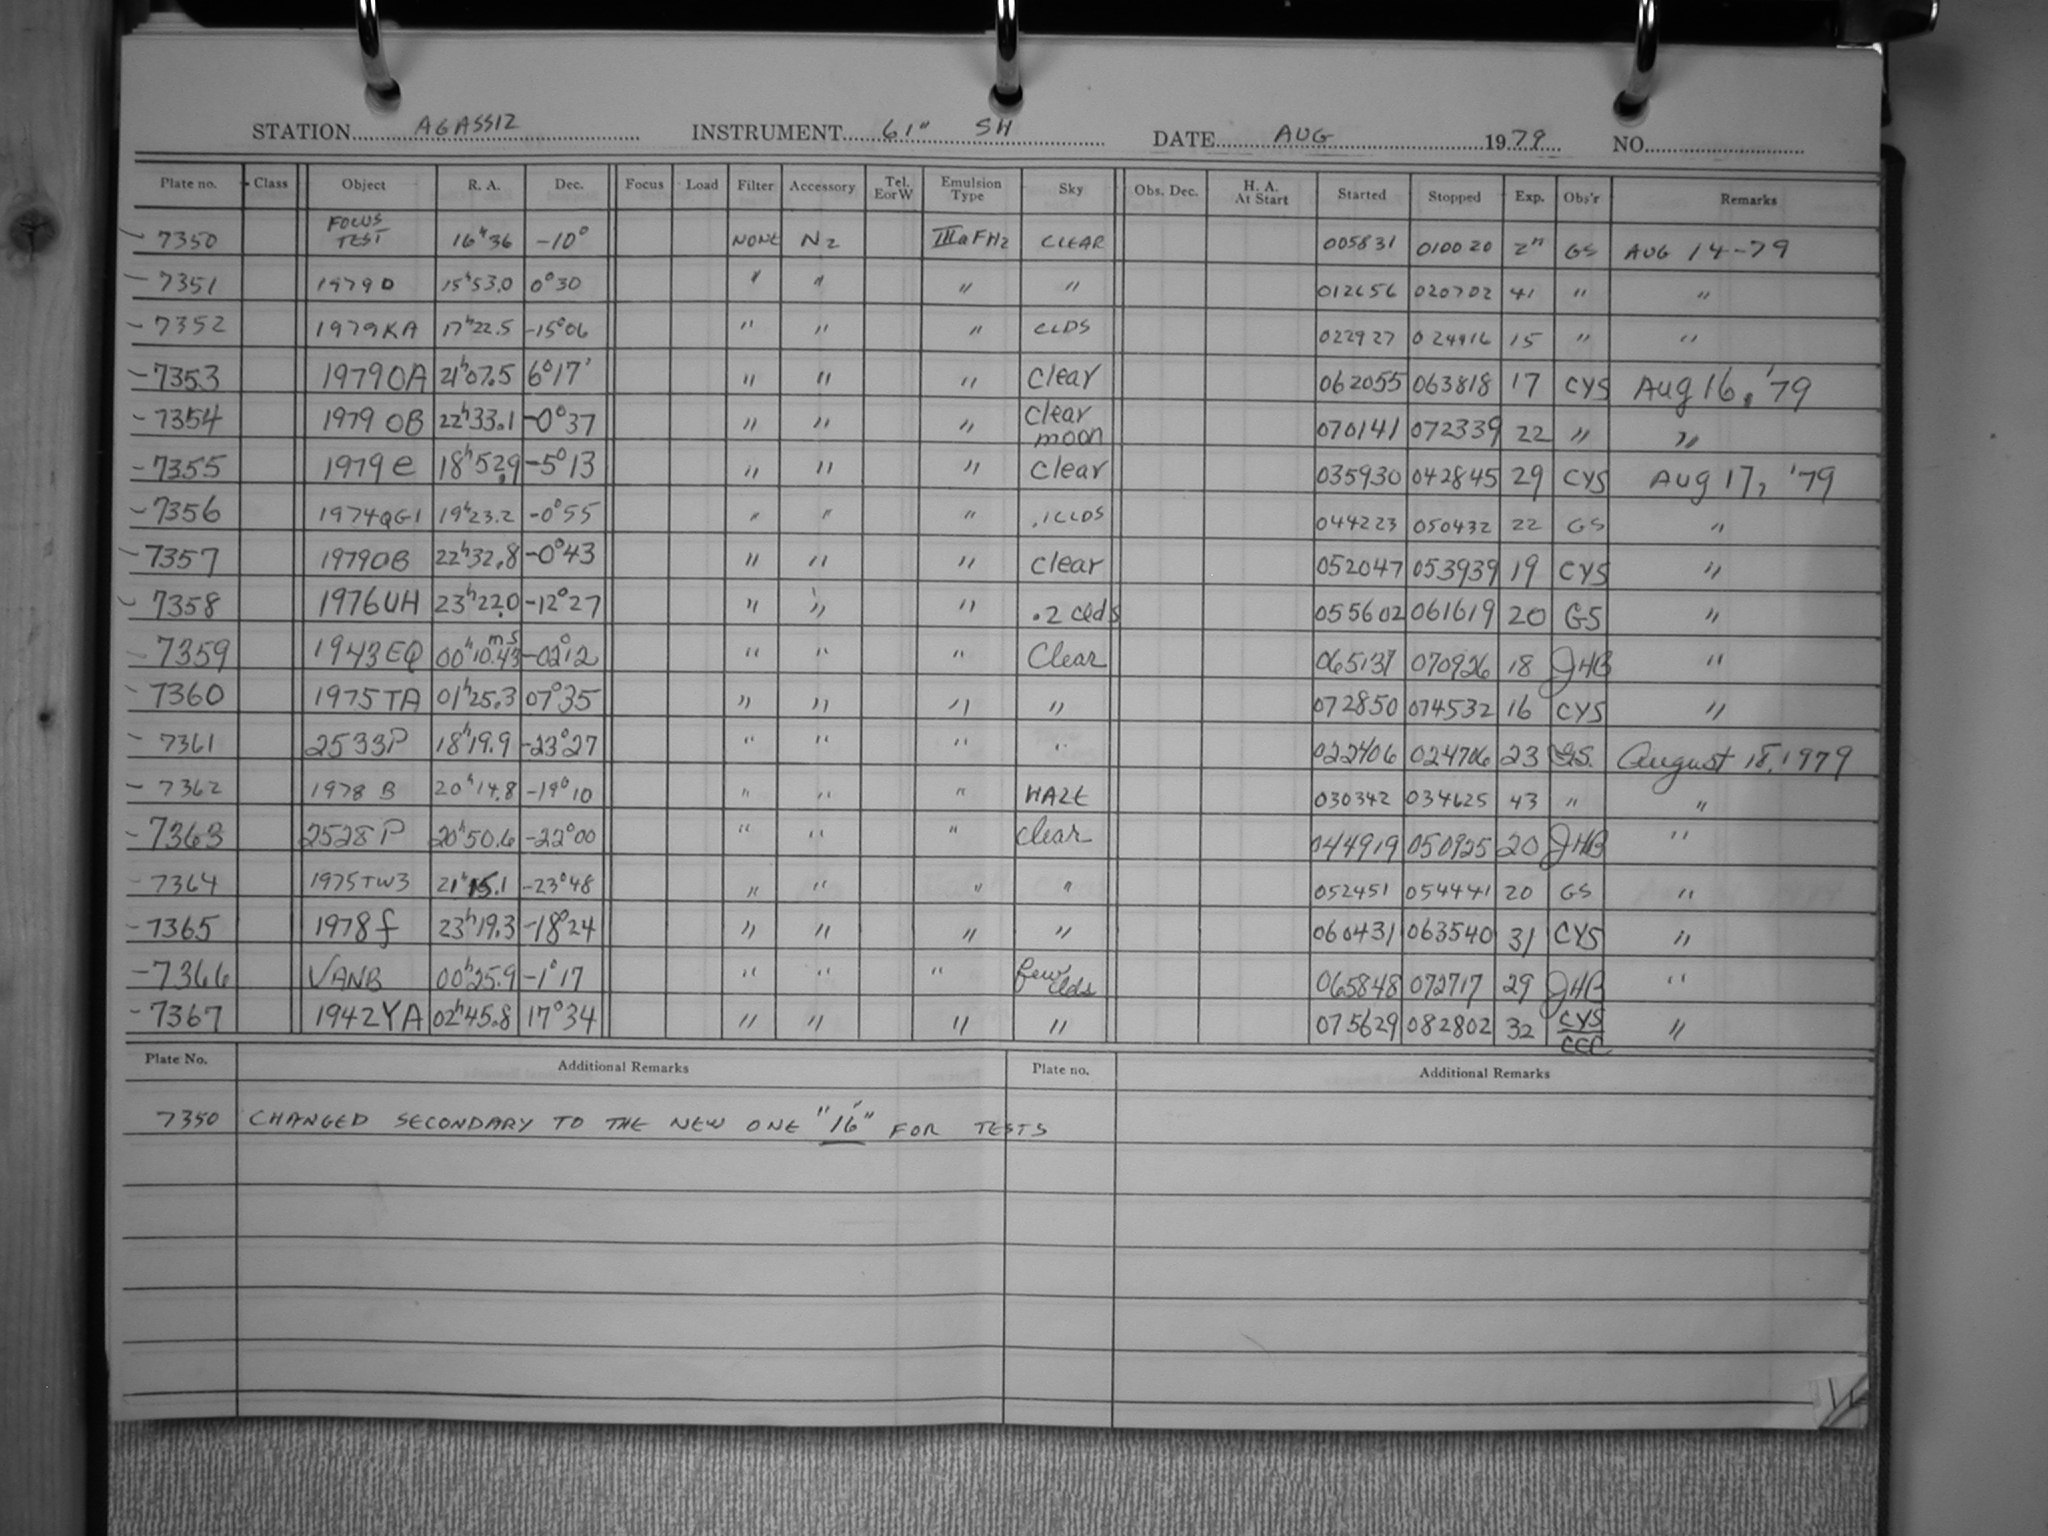 STATION AGASSIZ INSTRUMENT 61" SH DATE AUG 1979 NO.
Plate no. Class Object R. A. Dec. Focus Load Filter Accessory Tel. E or W Emulsion Type Sky Obs. Dec. H. A. At Start Started Stopped Exp. Obs'r Remarks
7350 FOCUS TEST 16h36 -10° NONE N2 IIIaFH2 CLEAR 005831 010020 2" GS AUG 14-79
7351 1979D 15h53.0 0°30 " " " " 012656 020702 41 " "
7352 1979KA 17h22.5 -15°06 " " " CLDS 022927 024416 15 " "
7353 1979OA 21h07.5 6°17' " " " Clear 062055 063818 17 CYS Aug 16, '79
7354 1979 OB 22h33.1 -0°37 " " " Clear moon 070141 072339 22 " "
7355 1979e 18h52.9 -5°13 " " " Clear 035930 042845 29 CYS Aug 17, '79
7356 1974QG1 19h23.2 -0°55 " " " .1CLDS 044223 050432 22 GS "
7357 1979OB 22h32.8 -0°43 " " " Clear 052047 053939 19 CYS "
7358 1976UH 23h22.0 -12°27 " " " .2 clds 055602 061619 20 GS "
7359 1943EQ 00h10.m43s -02°12 " " " Clear 065137 070926 18 JHB "
7360 1975TA 01h25.3 07°35 " " " " 072850 074532 16 CYS "
7361 2533P 18h19.9 -23°27 " " " " 022406 024706 23 G.S. August 18, 1979
7362 1978 B 20h14.8 -19°10 " " " HAZE 030342 034625 43 " "
7363 2528P 20h50.6 -22°00 " " " Clear 044919 050925 20 JHB "
7364 1975TW3 21h15.1 -23°48 " " " " 052451 054441 20 GS "
7365 1978f 23h19.3 -18°24 " " " " 060431 063540 31 CYS "
7366 VANB 00h25.9 -1°17 " " " few clds 065848 072717 29 JHB "
7367 1942YA 02h45.8 17°34 " " " " 075629 082802 32 CYS CCC "
Plate No. Additional Remarks Plate no. Additional Remarks
7350 CHANGED SECONDARY TO THE NEW ONE "16" FOR TESTS